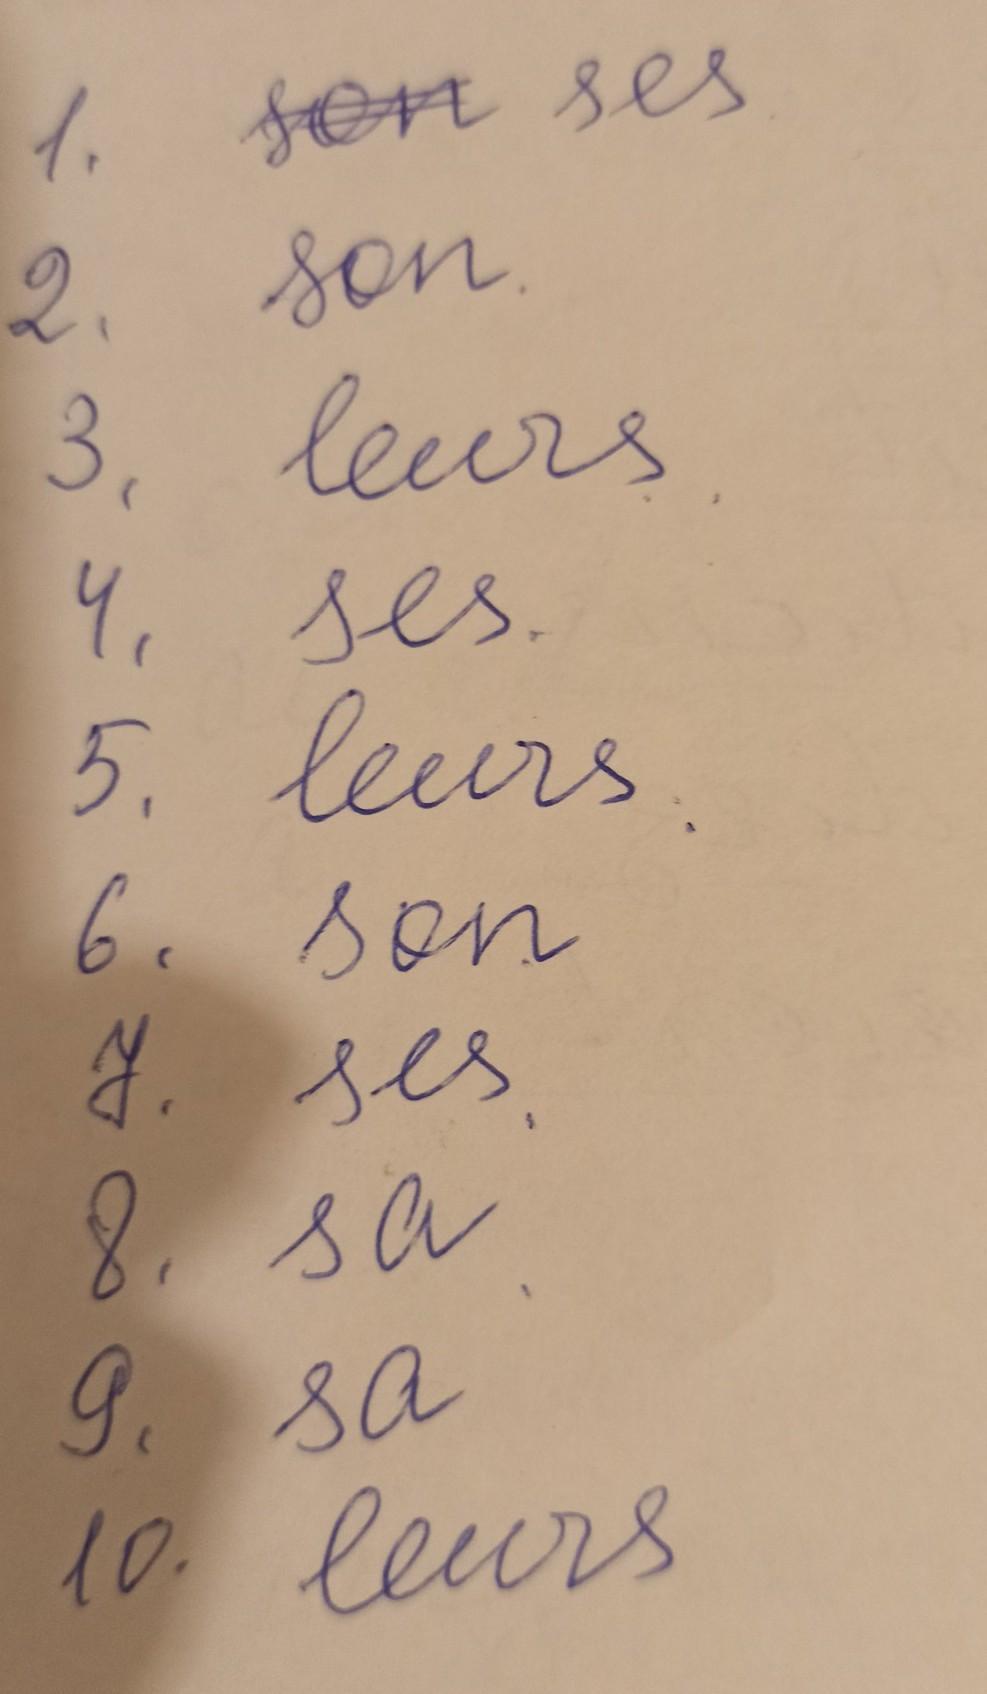 1. son ses
2. son.
3. leurs.
4. ses.
5. leurs.
6. son
7. ses.
8. sa.
9. sa
10. leurs